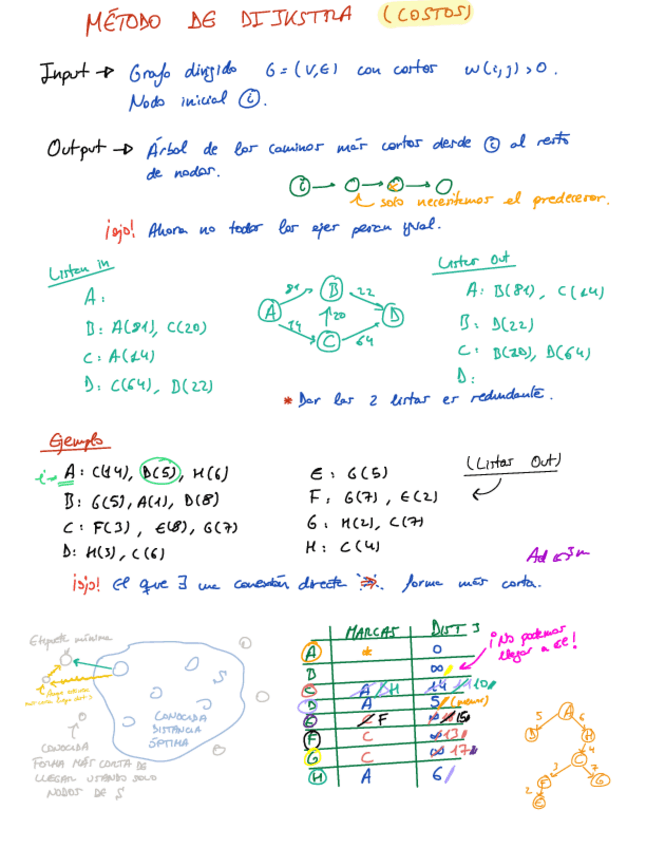 MÉTODO DE DIJKSTRA (COSTOS)
Input → Grafo dirigido G = (V,E) con costos w(i,j) > 0.
Nodo inicial i.
Output → Árbol de los caminos más cortos desde i al resto
de nodos.
i
solo necesitemos el predecesor.
¡ojo! Ahora no todos los ejes pesan igual.
Listas in
A:
B: A(81), C(20)
C: A(14)
D: C(64), B(22)
A B C D
81 22 14 20 64
Listas Out
A: B(81), C(14)
B: D(22)
C: B(20), D(64)
D:
* Dar las 2 listas es redundante.
Ejemplo
i→ A: C(14), D(5), H(6)
B: G(5), A(1), D(8)
C: F(3), E(8), G(7)
D: H(3), C(6)
E: G(5)
F: G(7), E(2)
G: H(2), C(7)
H: C(4)
(Listas Out)
¡ojo! el que ∃ una conexión directa ⇏ forma más corta.
Etiqueta mínima
S
CONOCIDA
DISTANCIA
ÓPTIMA
CONOCIDA
FORMA MÁS CORTA DE
LLEGAR USANDO SOLO
NODOS DE S
MARCAS DIST
A * 0
B ∞
C A D H 14 11 10
D A 5
E C F ∞ 15
F C ∞ 13
G C ∞ 17
H A 6
¡No podemos
llegar a él!
A D H C F G E
5 6 4 3 7 2